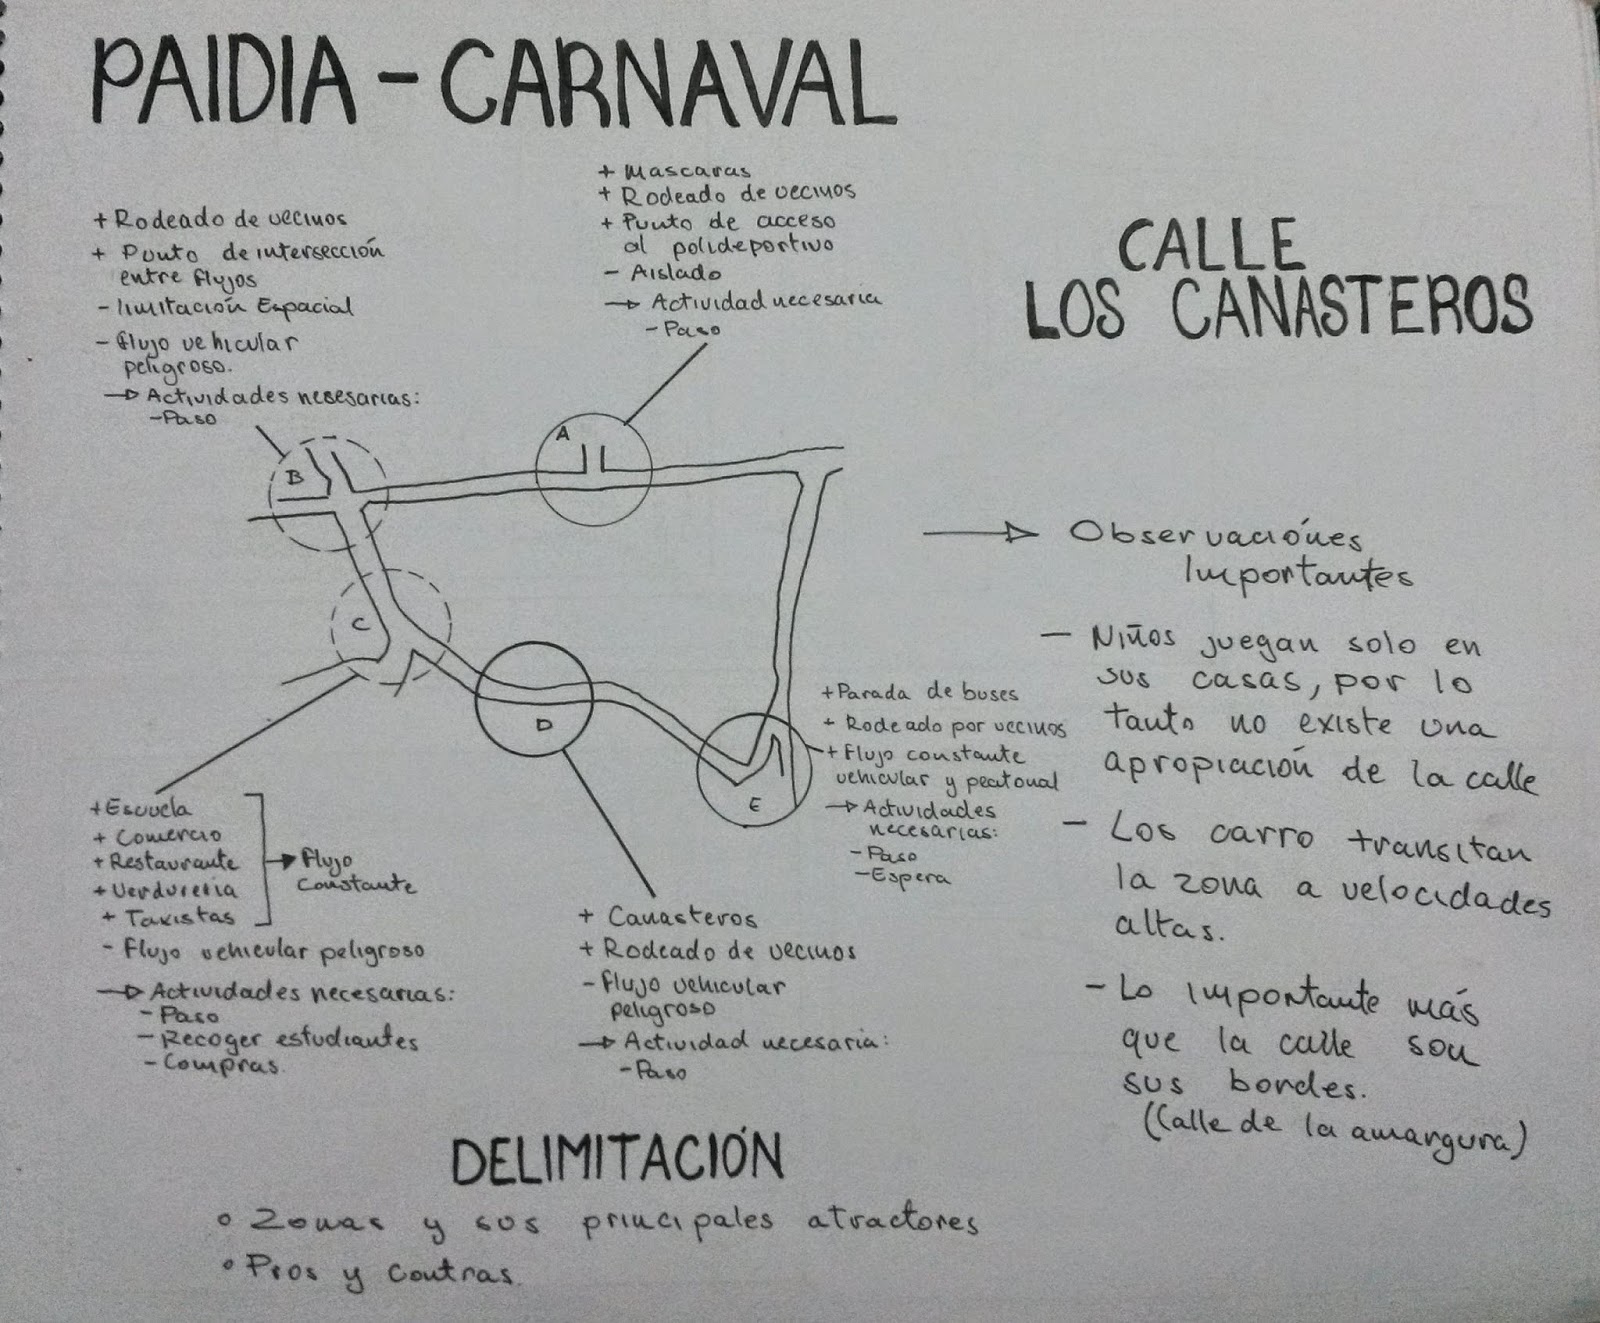 PAIDIA - CARNAVAL
+ Mascaras
+ Rodeado de vecinos
+ Punto de acceso
al polideportivo
- Aislado
→ Actividad necesaria
- Paso
+ Rodeado de vecinos
+ Punto de intersección
entre flujos
- limitación Espacial
- flujo vehicular
peligroso.
→ Actividades nesesarias:
- Paso
CALLE
LOS CANASTEROS
A
B
C
D
E
→ Observaciónes
Importantes
- Niños juegan solo en
sus casas, por lo
tanto no existe una
apropiación de la calle
- Los carro transitan
la zona a velocidades
altas.
- Lo importante más
que la calle son
sus bordes.
(Calle de la amargura)
+ Parada de buses
+ Rodeado por vecinos
+ Flujo constante
vehicular y peatonal
→ Actividades
necesarias:
- Paso
- Espera
+ Escuela
+ Comercio
+ Restaurante
+ Verdureria
+ Taxistas
→ Flujo
constante
- Flujo vehicular peligroso
→ Actividades necesarias:
- Paso
- Recoger estudiantes
- Compras.
+ Canasteros
+ Rodeado de vecinos
- flujo vehicular
peligroso
→ Actividad necesaria:
- Paso
DELIMITACIÓN
• Zonas y sus principales atractores
• Pros y contras.